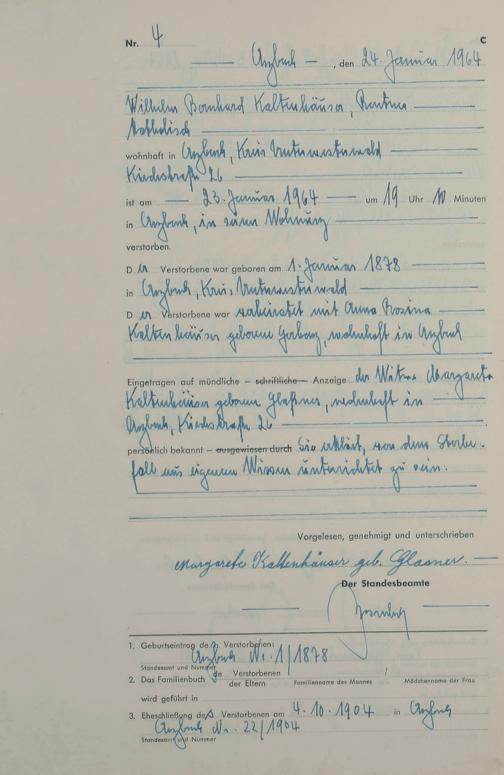 Nr. 4 C
Arzbach, den 24. Januar 1964
Wilhelm Bernhard Kaltenhäuser, Rentner
katholisch
wohnhaft in Arzbach, Kreis Unterwesterwald
Kirchstraße 26
ist am 23. Januar 1964 um 19 Uhr 10 Minuten
in Arzbach, in seiner Wohnung
verstorben.
D er Verstorbene war geboren am 1. Januar 1878
in Arzbach, Kreis Unterwesterwald
D er Verstorbene war verheiratet mit Anna Rosina
Kaltenhäuser geborene, wohnhaft in Arzbach
Eingetragen auf mündliche – schriftliche – Anzeige der Witwe Margareta
Kaltenhäuser geborene Glaßner, wohnhaft in
Arzbach, Kirchstraße 26
persönlich bekannt – ausgewiesen durch Sie erklärt, von dem Sterbe-
fall aus eigenem Wissen unterrichtet zu sein.
Vorgelesen, genehmigt und unterschrieben
Margarete Kaltenhäuser geb. Glasner.
Der Standesbeamte
1. Geburtseintrag des Verstorbenen:
Arzbach Nr. 1/1878
Standesamt und Nummer
2. Das Familienbuch de Verstorbenen /
der Eltern Familienname des Mannes Mädchenname der Frau
wird geführt in
3. Eheschließung des Verstorbenen am 4.10.1904 in Arzbach
Arzbach Nr. 22/1904
Standesamt und Nummer